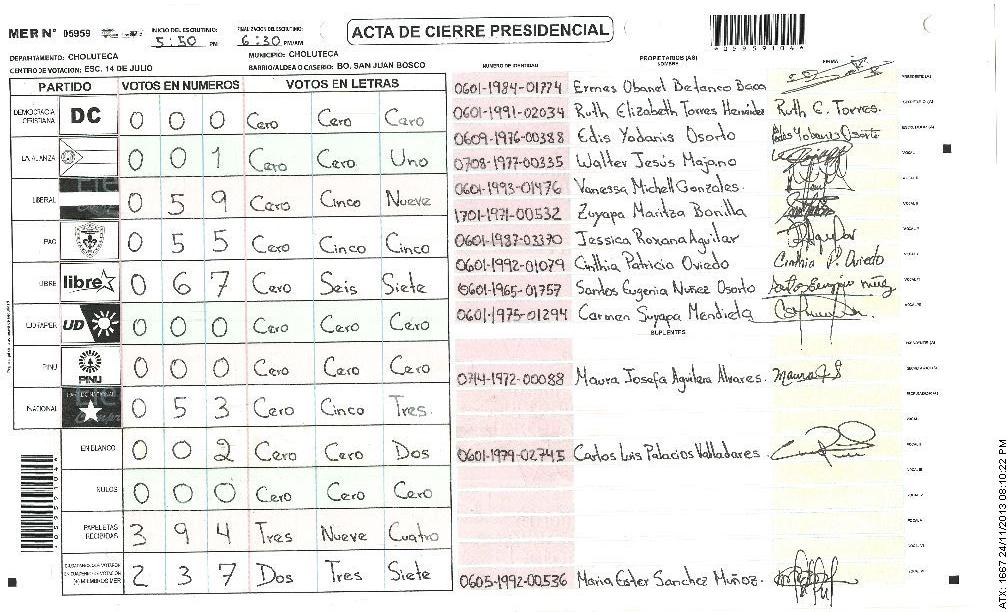 MER N° 05959
INICIO DEL ESCRUTINIO: 5:50 PM
FINALIZACION DEL ESCRUTINIO: 6:30 PM/AM
ACTA DE CIERRE PRESIDENCIAL
*0595910４*
DEPARTAMENTO: CHOLUTECA
MUNICIPIO: CHOLUTECA
CENTRO DE VOTACION: ESC. 14 DE JULIO
BARRIO/ALDEA O CASERIO: BO. SAN JUAN BOSCO
PARTIDO VOTOS EN NUMEROS VOTOS EN LETRAS
DEMOCRACIA CRISTIANA DC 0 0 0 Cero Cero Cero
LA ALIANZA 0 0 1 Cero Cero Uno
LIBERAL 0 5 9 Cero Cinco Nueve
PAC 0 5 5 Cero Cinco Cinco
LIBRE libre 0 6 7 Cero Seis Siete
UD/FAPER UD 0 0 0 Cero Cero Cero
PINU PINU 0 0 0 Cero Cero Cero
NACIONAL 0 5 3 Cero Cinco Tres
EN BLANCO 0 0 2 Cero Cero Dos
NULOS 0 0 0 Cero Cero Cero
PAPELETAS RECIBIDAS 3 9 4 Tres Nueve Cuatro
2 3 7 Dos Tres Siete
NUMERO DE IDENTIDAD PROPIETARIOS (AS) NOMBRE FIRMA
0601-1984-01774 Ermes Obanel Betanco Baca PRESIDENTE (A)
0601-1991-02034 Ruth Elizabeth Torres Ruth E. Torres. SECRETARIO (A)
0609-1976-00388 Edis Yodanis Osorto Edis Yobanis Osorto ESCRUTADOR (A)
0708-1977-00335 Walter Jesús Majano VOCAL I
0601-1993-01476 Vanessa Michell Gonzales. VOCAL II
1701-1971-00532 Zuyapa Maritza Bonilla VOCAL III
0601-1987-03370 Jessica Roxana Aguilar VOCAL IV
0601-1992-01079 Cinthia Patricia Oviedo Cinthia P. Oviedo VOCAL V
0601-1965-01757 Santos Eugenia Nuñez Osorto VOCAL VI
0601-1975-01294 Carmen Suyapa Mendieta
SUPLENTES
PRESIDENTE (A)
0714-1972-00088 Maura Josefa Aguilera Alvares. SECRETARIO (A)
ESCRUTADOR (A)
VOCAL I
0601-1979-02745 Carlos Luis Palacios Valladares. VOCAL II
VOCAL III
0605-1992-00536 Maria Ester Sanchez Muñoz.
ATX: 1667 24/11/2013 08:10:22 PM